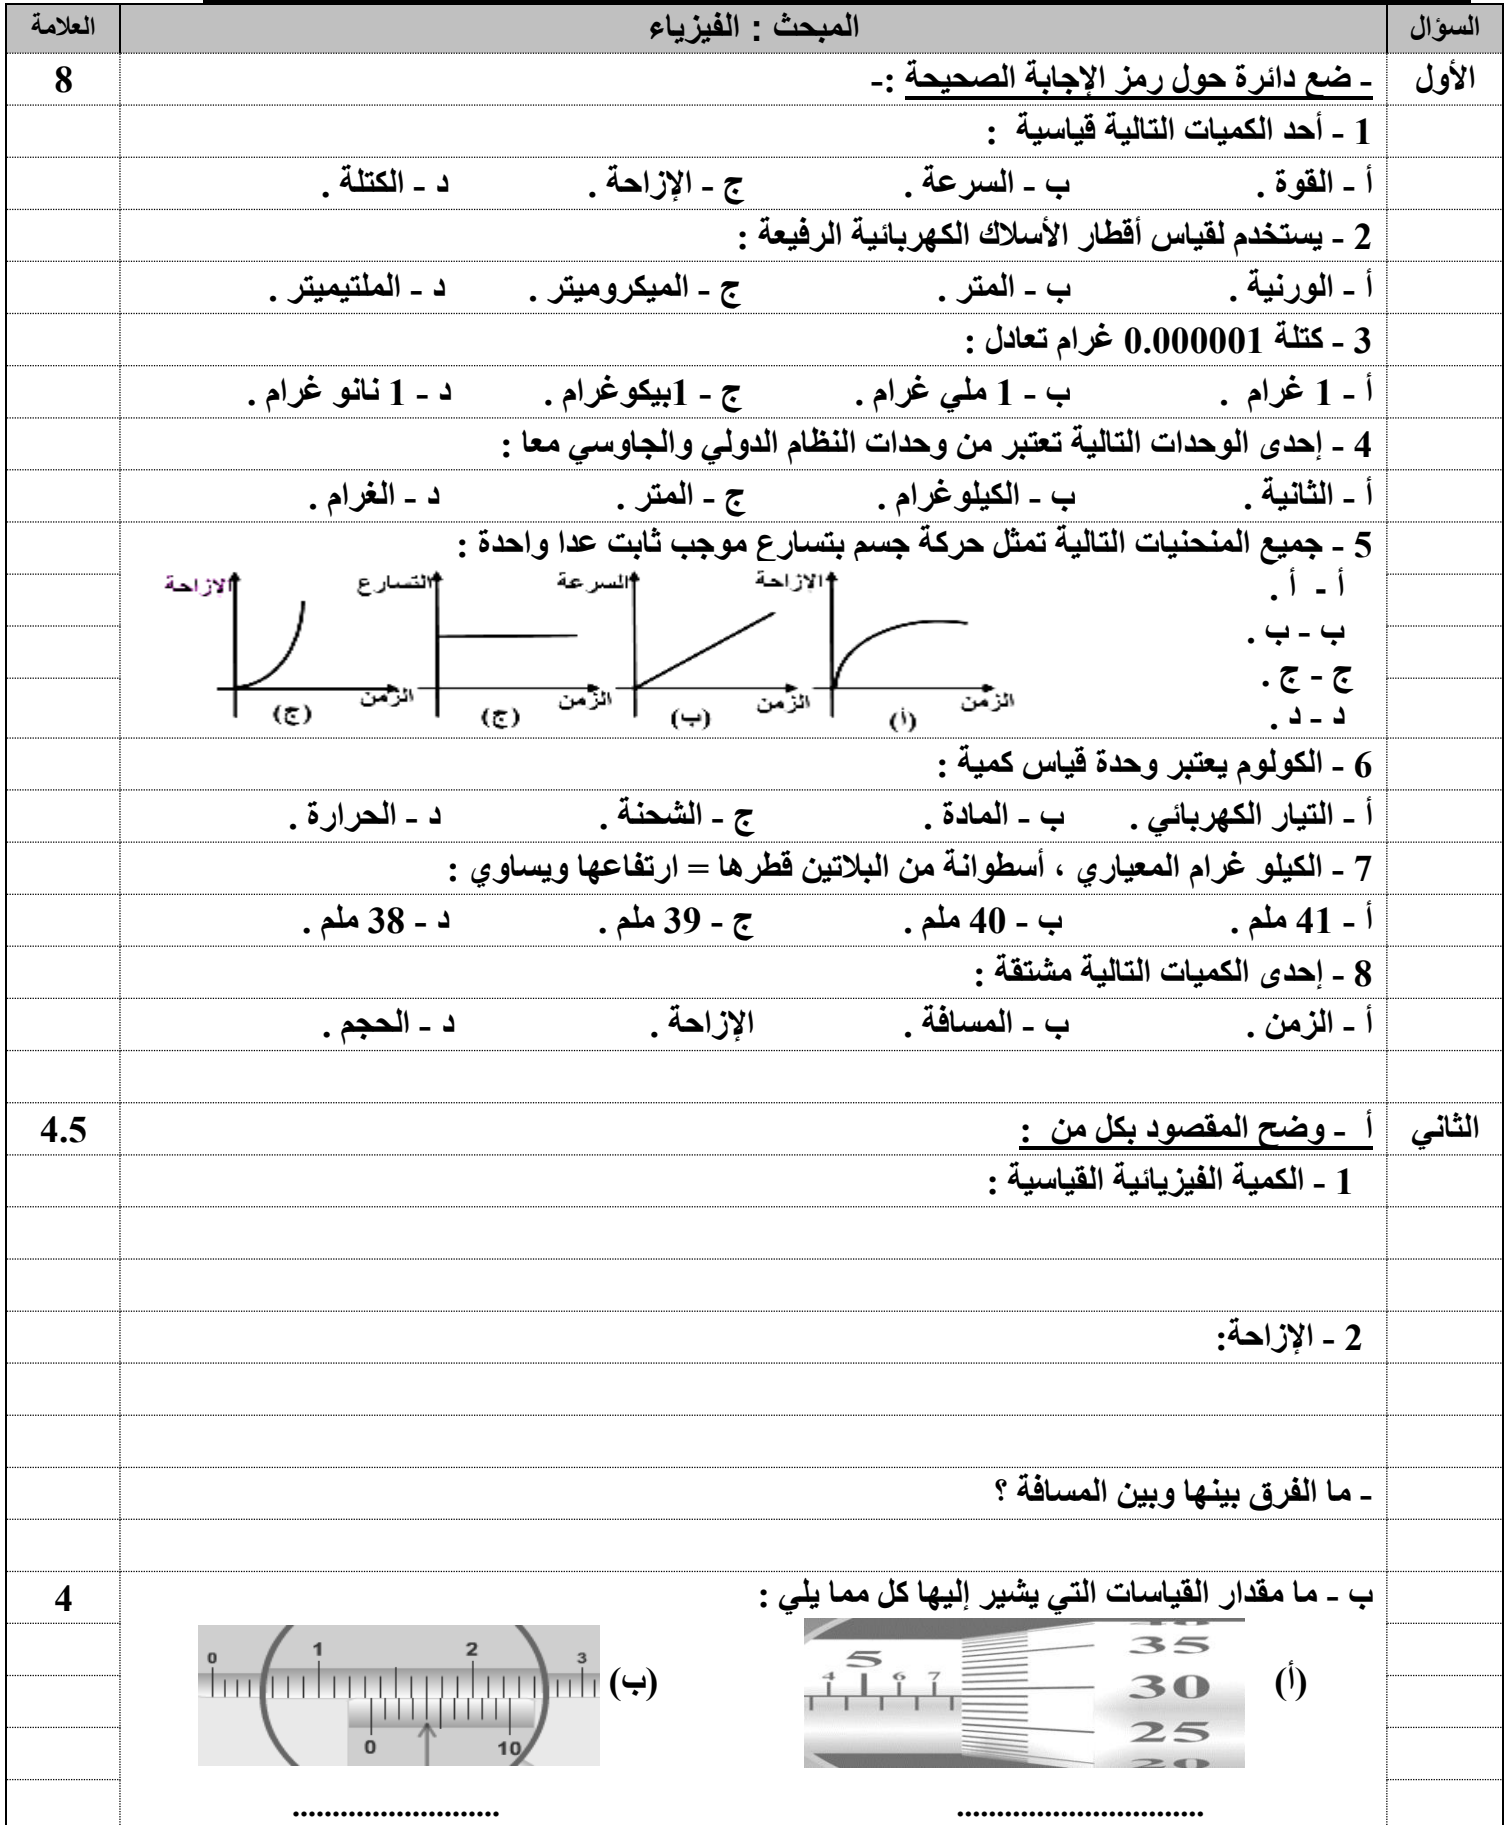 السؤال المبحث : الفيزياء العلامة
الأول - ضع دائرة حول رمز الإجابة الصحيحة :- 8
1 - أحد الكميات التالية قياسية :
أ - القوة . ب - السرعة . ج - الإزاحة . د - الكتلة .
2 - يستخدم لقياس أقطار الأسلاك الكهربائية الرفيعة :
أ - الورنية . ب - المتر . ج - الميكروميتر . د - الملتيميتر .
3 - كتلة 0.000001 غرام تعادل :
أ - 1 غرام . ب - 1 ملي غرام . ج - 1بيكوغرام . د - 1 نانو غرام .
4 - إحدى الوحدات التالية تعتبر من وحدات النظام الدولي والجاوسي معا :
أ - الثانية . ب - الكيلوغرام . ج - المتر . د - الغرام .
5 - جميع المنحنيات التالية تمثل حركة جسم بتسارع موجب ثابت عدا واحدة :
أ - أ .
ب - ب .
ج - ج .
د - د .
الإزاحة السرعة التسارع الإزاحة
الزمن الزمن الزمن الزمن
(أ) (ب) (ج) (ج)
6 - الكولوم يعتبر وحدة قياس كمية :
أ - التيار الكهربائي . ب - المادة . ج - الشحنة . د - الحرارة .
7 - الكيلو غرام المعياري ، أسطوانة من البلاتين قطرها = ارتفاعها ويساوي :
أ - 41 ملم . ب - 40 ملم . ج - 39 ملم . د - 38 ملم .
8 - إحدى الكميات التالية مشتقة :
أ - الزمن . ب - المسافة . الإزاحة . د - الحجم .
الثاني أ - وضح المقصود بكل من : 4.5
1 - الكمية الفيزيائية القياسية :
2 - الإزاحة:
- ما الفرق بينها وبين المسافة ؟
ب - ما مقدار القياسات التي يشير إليها كل مما يلي : 4
(أ)
4 5 6 7
35
30
25
20
(ب)
0 1 2 3
0 10
............................... ..........................